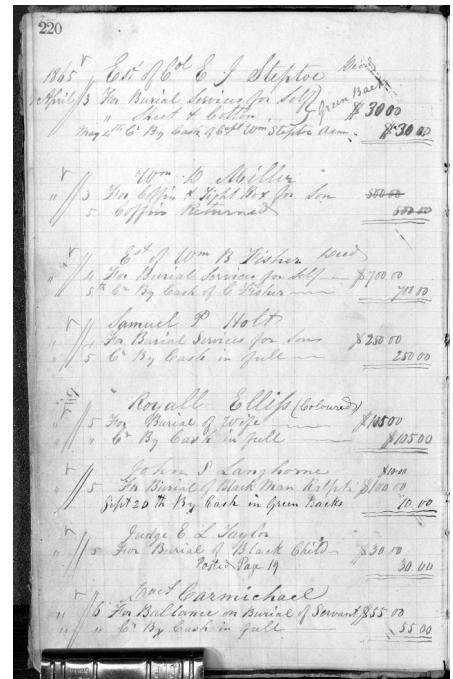 220
1865 " Est of Col E J Steptoe Decd
April 3 For Burial Services for Self } Green Back
" Sheet & Cotton } $30 00
May 4th Cr By Cash of Capt Wm Steptoe Adm. $30 00
Wm D Miller
" 3 For Coffin & Tight Box for Son 500 00
5 Coffin Returned 500 00
Est of Wm B Fisher Decd
" 4 For Burial Services for Self $700.00
5th Cr By Cash of C Fisher 700 00
Samuel P Holt
" 4 For Burial Services for Sons $250 00
" 5 Cr By Cash in full 250 00
" Royall Elliss (Coloured)
" 5 For Burial of Wife $105 00
" " Cr By Cash in full $105 00
John S Langhorne $10 00
" 5 For Burial of Black Man $100 00
Sept 20th By Cash in Green Backs 10 00
Judge E L Taylor
" 5 For Burial of Black Child $30 00
Posted Page 19 30 00
Doct Carmichael
" 5 For Ballance on Burial of Servant $55 00
" " Cr By Cash in full 55 00